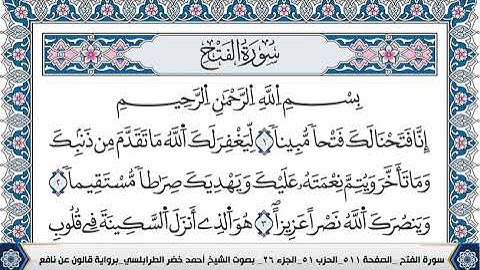 سُورَةُ الفَتْحِ
بِسْمِ اِللَّهِ اِلرَّحْمَٰنِ اِلرَّحِيمِ
إِنَّا فَتَحْنَا لَكَ فَتْحاٗ مُّبِيناٗ ١ لِّيَغْفِرَ لَكَ اَللَّهُ مَا تَقَدَّمَ مِن ذَنۢبِكَ
وَمَا تَأَخَّرَ وَيُتِمَّ نِعْمَتَهُۥ عَلَيْكَ وَيَهْدِيَكَ صِرَٰطاٗ مُّسْتَقِيماٗ ٢
وَيَنصُرَكَ اَللَّهُ نَصْراً عَزِيزاً ٣ هُوَ اَلذِے أَنزَلَ اَلسَّكِينَةَ فِے قُلُوبِ
سورة الفتح _الصفحة ٥١١_الحزب ٥١_الجزء ٢٦_ بصوت الشيخ أحمد خضر الطرابلسي_برواية قالون عن نافع